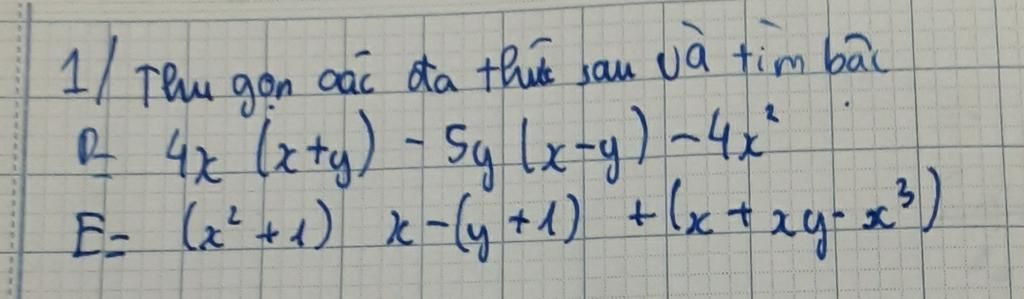 1/ Thu gọn các đa thức sau và tìm bậc
D= 4x (x+y) - 5y (x-y) - 4x²
E= (x² + 1) x - (y + 1) + (x + xy - x³)